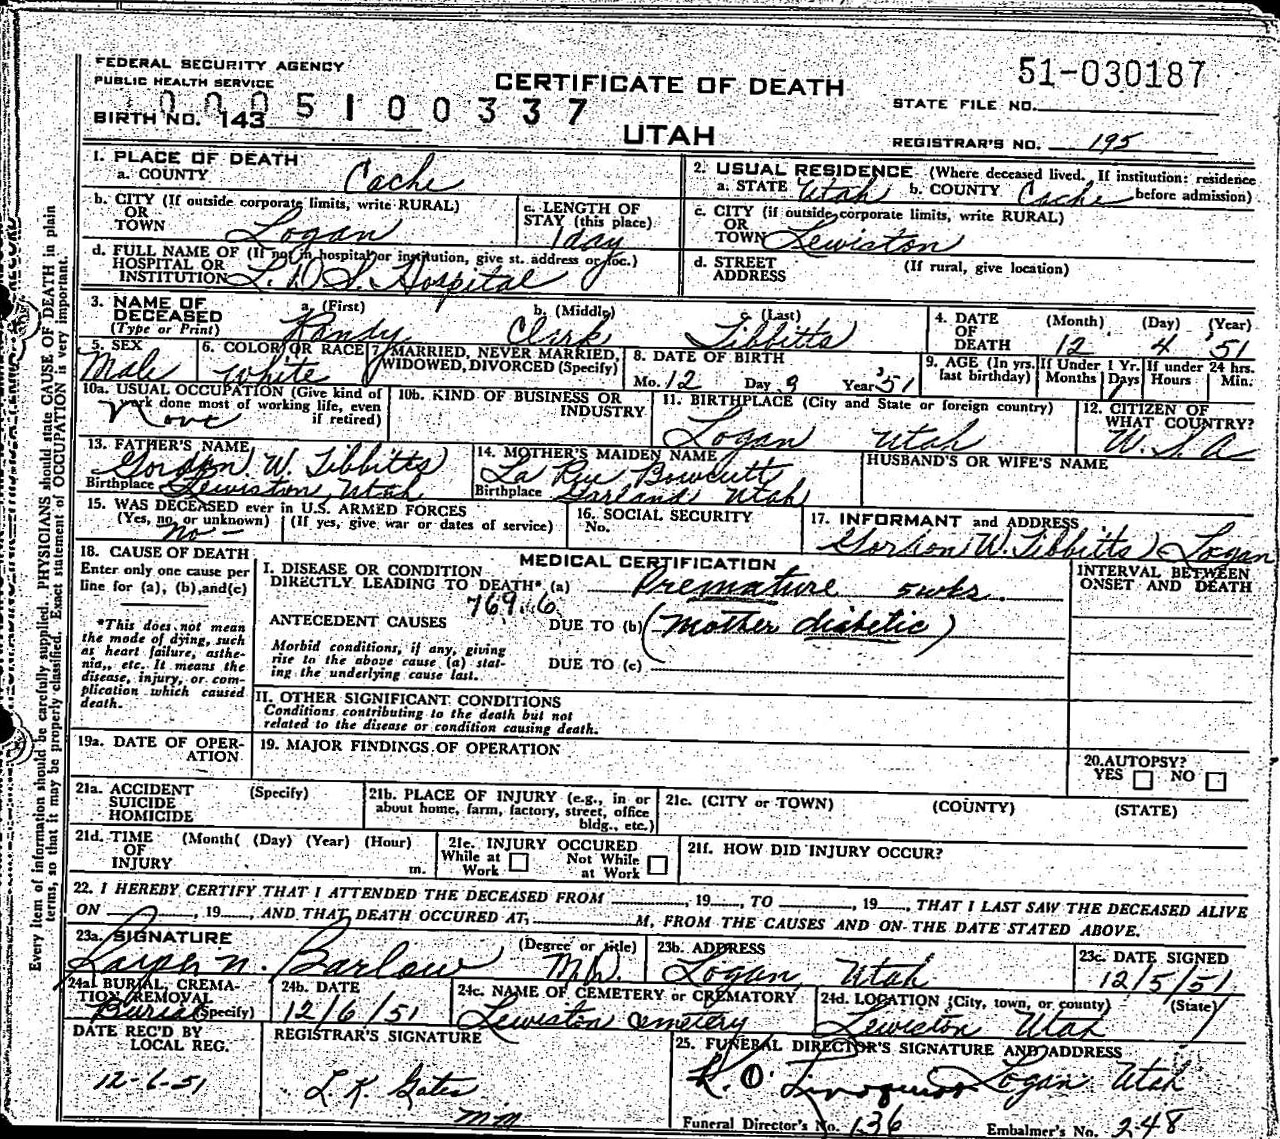 FEDERAL SECURITY AGENCY
PUBLIC HEALTH SERVICE
CERTIFICATE OF DEATH
51-030187
STATE FILE NO.
0005100337
BIRTH NO. 143
UTAH
REGISTRAR'S NO. 195
1. PLACE OF DEATH
a. COUNTY Cache
2. USUAL RESIDENCE (Where deceased lived. If institution: residence before admission)
a. STATE Utah b. COUNTY Cache
b. CITY (If outside corporate limits, write RURAL)
OR
TOWN Logan
c. LENGTH OF
STAY (this place)
1 day
c. CITY (if outside corporate limits, write RURAL)
OR
TOWN Lewiston
d. FULL NAME OF (If not in hospital or institution, give st. address or loc.)
HOSPITAL OR
INSTITUTION L.D.S. Hospital
d. STREET (If rural, give location)
ADDRESS
3. NAME OF
DECEASED
(Type or Print)
a. (First) b. (Middle) c. (Last)
Randy Clark Tibbitts
4. DATE
OF
DEATH
(Month) (Day) (Year)
12 4 '51
5. SEX
Male
6. COLOR OR RACE
White
7. MARRIED, NEVER MARRIED,
WIDOWED, DIVORCED (Specify)
8. DATE OF BIRTH
Mo. 12 Day Year '51
9. AGE (In yrs.
last birthday)
If Under 1 Yr.
Months Days
1
If under 24 hrs.
Hours Min.
10a. USUAL OCCUPATION (Give kind of
work done most of working life, even
if retired)
None
10b. KIND OF BUSINESS OR
INDUSTRY
11. BIRTHPLACE (City and State or foreign country)
Logan Utah
12. CITIZEN OF
WHAT COUNTRY?
U.S.A
13. FATHER'S NAME
Gordon W. Tibbitts
Birthplace Lewiston, Utah
14. MOTHER'S MAIDEN NAME
La Rue Bowcutt
Birthplace Garland Utah
HUSBAND'S OR WIFE'S NAME
15. WAS DECEASED ever in U.S. ARMED FORCES
(Yes, no, or unknown) (If yes, give war or dates of service)
no -
16. SOCIAL SECURITY
No.
17. INFORMANT and ADDRESS
Gordon W. Tibbitts Logan
18. CAUSE OF DEATH
Enter only one cause per
line for (a), (b), and (c)
*This does not mean
the mode of dying, such
as heart failure, asthe-
nia,, etc. It means the
disease, injury, or com-
plication which caused
death.
MEDICAL CERTIFICATION
I. DISEASE OR CONDITION
DIRECTLY LEADING TO DEATH* (a) Premature 5 wks.
769.6
ANTECEDENT CAUSES DUE TO (b) (Mother diabetic)
Morbid conditions, if any, giving
rise to the above cause (a) stat-
ing the underlying cause last.
DUE TO (c)
II. OTHER SIGNIFICANT CONDITIONS
Conditions contributing to the death but not
related to the disease or condition causing death.
INTERVAL BETWEEN
ONSET AND DEATH
19a. DATE OF OPER-
ATION
19. MAJOR FINDINGS OF OPERATION
20. AUTOPSY?
YES NO
21a. ACCIDENT (Specify)
SUICIDE
HOMICIDE
21b. PLACE OF INJURY (e.g., in or
about home, farm, factory, street, office
bldg., etc.)
21c. (CITY or TOWN) (COUNTY) (STATE)
21d. TIME (Month( (Day) (Year) (Hour)
OF
INJURY m.
21e. INJURY OCCURED
While at Work Not While at Work
21f. HOW DID INJURY OCCUR?
22. I HEREBY CERTIFY THAT I ATTENDED THE DECEASED FROM , 19 , TO , 19 , THAT I LAST SAW THE DECEASED ALIVE
ON , 19 , AND THAT DEATH OCCURED AT, M, FROM THE CAUSES AND ON THE DATE STATED ABOVE.
23a. SIGNATURE (Degree or title)
N. Barlow M.D.
23b. ADDRESS
Logan, Utah
23c. DATE SIGNED
12/5/51
24a BURIAL, CREMA-
TION, REMOVAL
Burial (Specify)
24b. DATE
12/6/51
24c. NAME OF CEMETERY or CREMATORY
Lewiston Cemetery
24d. LOCATION (City, town, or county) (State)
Lewiston Utah
DATE REC'D BY
LOCAL REG.
12-6-51
REGISTRAR'S SIGNATURE
L K Gates
mm
25. FUNERAL DIRECTOR'S SIGNATURE AND ADDRESS
Logan Utah
Funeral Director's No. 136 Embalmer's No. 248
Every item of information should be carefully supplied. PHYSICIANS should state CAUSE OF DEATH in plain
terms, so that it may be properly classified. Exact statement of OCCUPATION is very important.